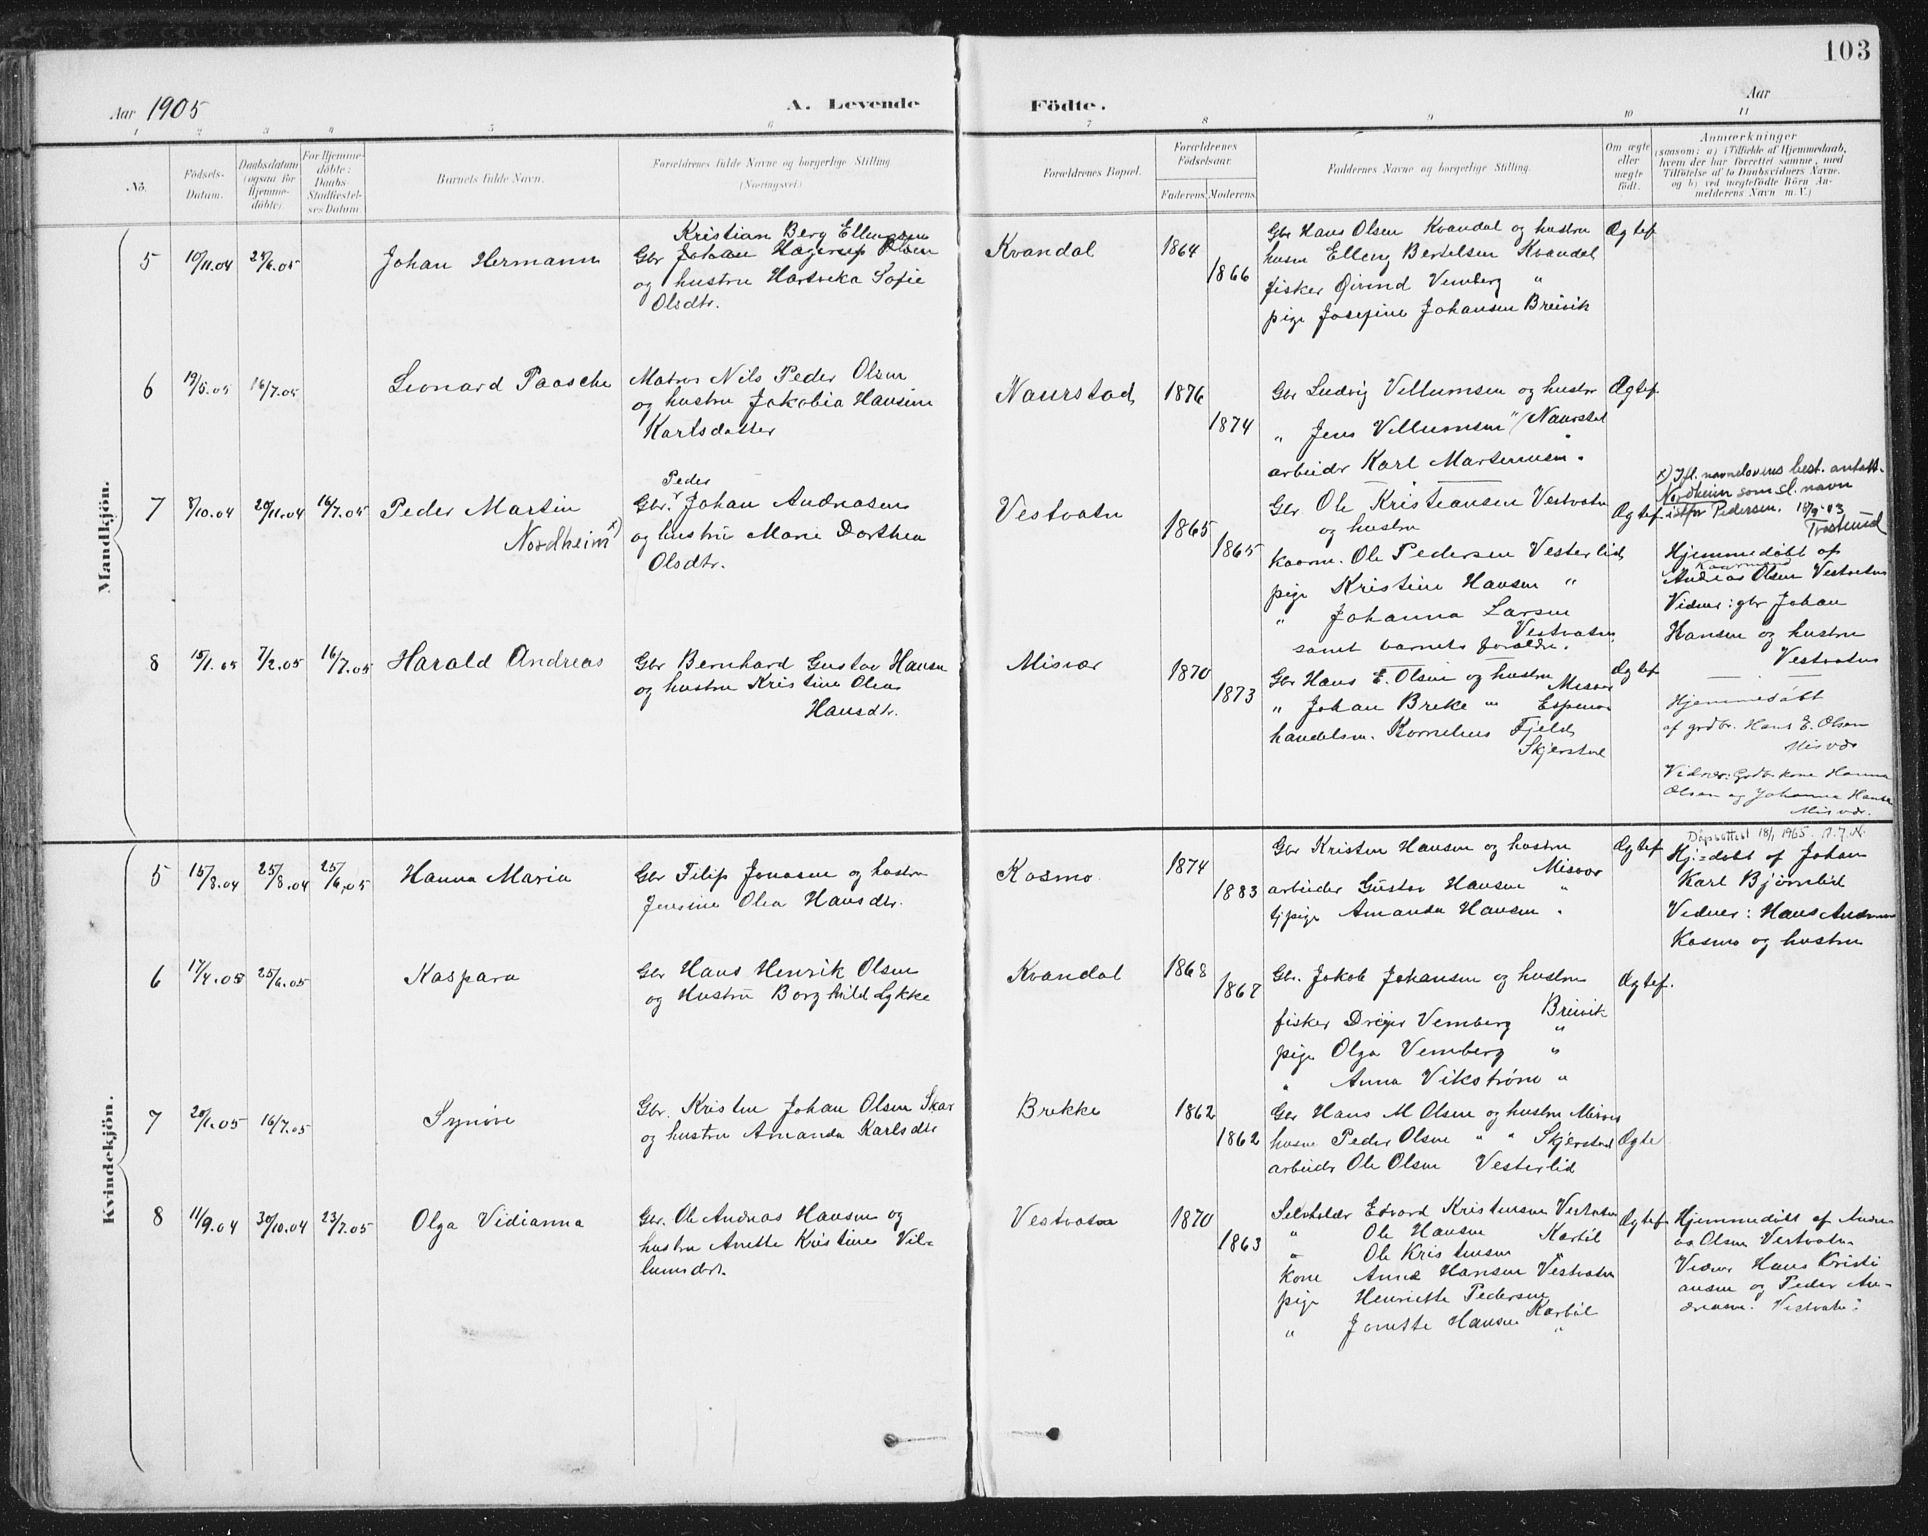 103
Aar 1905
A. Levende Födte.
Aar
1 2 3 4 5 6 7 8 9 10 11
No.
Födsels-
Datum.
Daabsdatum
(ogsaa for
Hjemme-
döbte).
For Hjemme-
döbte:
Daabs
Stadfæstel-
ses Datum.
Barnets fulde Navn.
Forældrenes fulde Navne og borgerlige Stilling
(Næringsvei.)
Forældrenes Bopæl.
Forældrenes
Födselsaar.
Faderens Moderens
Faddernes Navne og borgerlige Stilling.
Om ægte
eller
uægte
födt.
Anmærkninger
(saasom: a) i Tilfælde af Hjemmedaab,
hvem der har forrettet samme, med
Tilföielse af to Daabsvidners Navne.
og b) ved uægtefödte Börn An-
melderens Navn m. V.)
Mandkjön.
5 10/11.04 25/6.05 Johan Hermann
Kristian Berg Ellingsen
Gbr Johan Hagerup
og hustru Hartvika Sofie
Olsdtr.
Kvandal 1864 1866
Gbr Hans Olsen Kvandal og hustru
husm Elling Bertelsen Kvandal
fisker Øivind Vemberg "
pige Josefine Johansen Breivik
Ægtef
6 19/5.05 16/7.05 Leonard Paasche
Matros Nils Peder Olsen
og hustru Jakobia Hansine
Karlsdatter
Naurstad 1876 1874
Gbr Ludvig Vellumsen og hustru
" Jens Vellumsen " Naurstad
arbeider Karl Martinusen "
Ægtef.
7 8/10.04 20/11.04 16/7.05 Peder Martin
Nordheim x)
Peder
Gbr. Johan Andreasen
og hustru Marie Dorthea
Olsdtr.
Vestvatn 1865 1865
Gbr Ole Kristiansen Vestvatn
og hustru
kaarm. Ole Pedersen Vesterlid
pige Kristine Hansen "
" Johanna Larsen
Vestvatn
samt barnets forældre.
Ægtef
x) Ifl. navnelovens best. antatt
Nordheim som sl. navn
istfor Pedersen.
Hjemmedøbt af
Kaarmand
Andreas Olsen Vestvatn
Vidner: gbr Johan
Hansen og hustru
Vestvatn
8 15/1.05 7/2.05 16/7.05 Harald Andreas
Gbr Bernhard Gustav Hansen
og hustru Kristine Olea
Hansdtr.
Misvær 1870 1873
Gbr Hans E. Olsen og hustru
Misvær
" Johan Breke " Espenes
handelsm. Kornelius Fjeld,
Skjerstad
Ægtef
Hjemmedøbt
af grdbr. Hans E. Olsen
Misvær
Vidner: Grdbr.kone Hanna
Olsen og Johanna Hansen
Misvær.
Kvindekjön.
5 15/8.04 25/8.04 25/6.05 Hanna Maria
Gbr Filip Jonasen og hustru
Jensine Olea Hansdtr.
Kosmo 1874 1883
Gbr Kristen Hansen og hustru
Misvær
arbeider Gustav Hansen "
tjpige Amanda Hansen "
Ægtef
Dåpsattest 18/1 1965.
Hj=døbt af Johan
Karl Bjørnlid
Vidner: Hans Andreasen
Kosmo og hustru
6 17/4.05 25/6.05 Kaspara
Gbr Hans Henrik Olsen
og Hustru Borghild Lykke
Kvandal 1868 1867
Gbr. Jakob Johansen og hustru
Breivik
fisker Dreyer Vemberg "
pige Olga Vemberg "
" Anna Vikstrøm "
Ægtef.
7 20/1.05 16/7.05 Synøve
Gbr. Kristen Johan Olsen Skar
og hustru Amanda Karlsdtr
Brekke 1862 1862
Gbr Hans M Olsen og hustru Misvær
husm Peder Olsen " " Skjerstad
arbeider Ole Olsen Vesterlid
Ægte
8 11/9.04 30/10.04 23/7.05 Olga Vidianna
Gbr. Ole Andreas Hansen og
hustru Anette Kristine Vil-
lumsdtr.
Vestvatn 1870 1863
Selveier Edvard Kristensen Vestvatn
" Ole Hansen Karbøl
" Ole Kristensen "
kone Anne Hansen Vestvatn
pige Henriette Pedersen
Karbøl
" Jonette Hansen "
Ægtef
Hjemmedøbt af Andre-
as Olsen Vestvatn.
Vidner Hans Kristi
ansen og Peder An-
dreasen. Vestvatn.